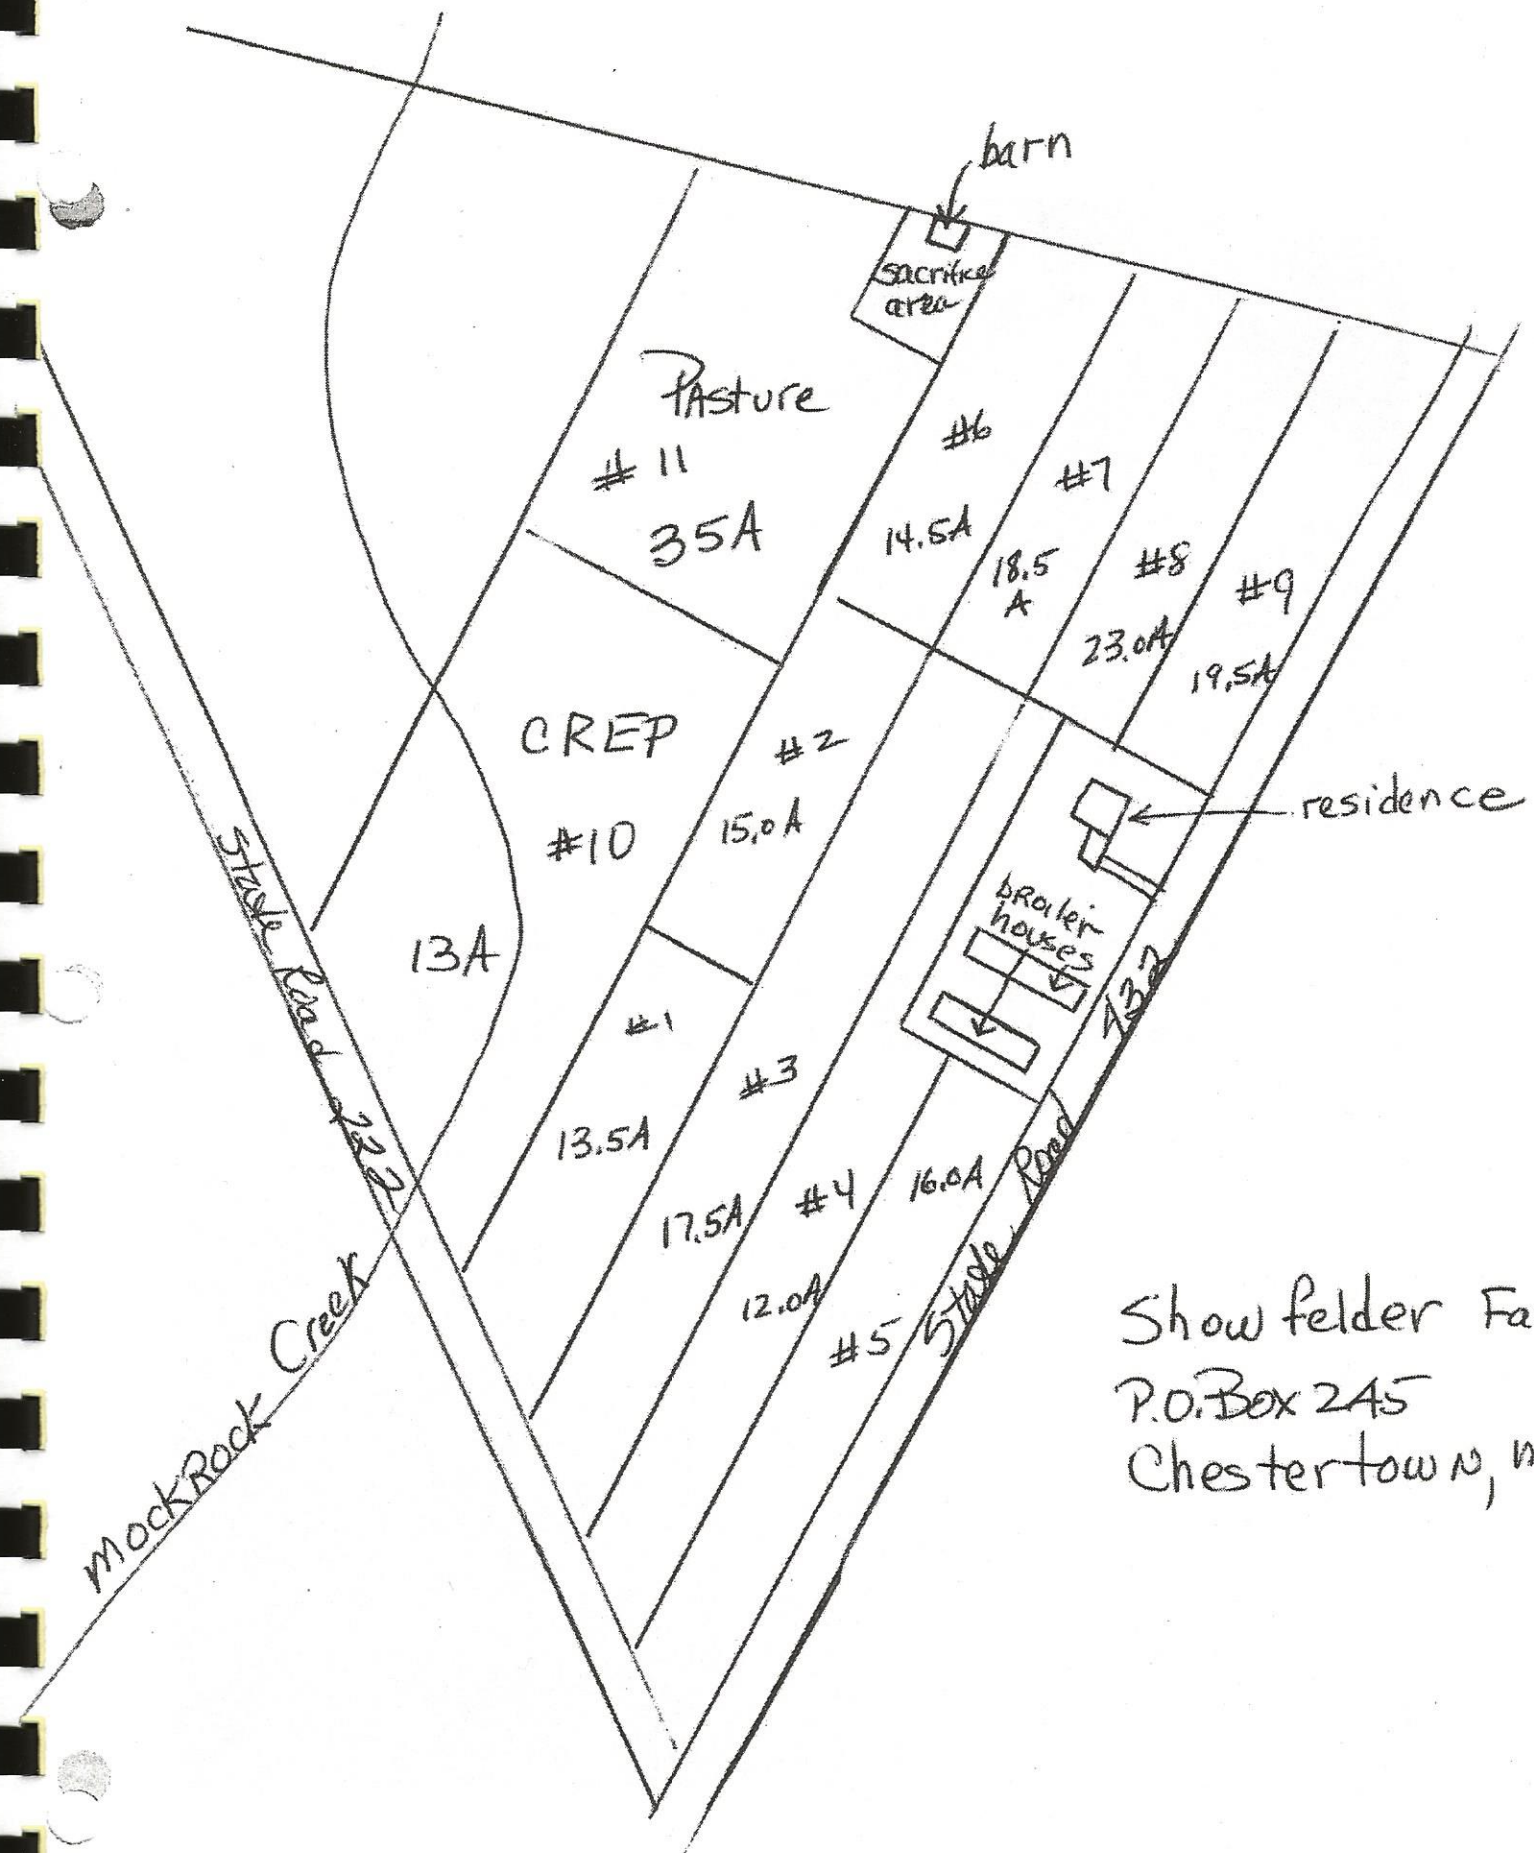 barn
sacrifice
area
Pasture
# 11
35A
#6
14.5A
#7
18.5
A
#8
23.0A
#9
19.5A
CREP
#10
13A
#2
15.0A
residence
broiler
houses
#1
13.5A
#3
17.5A
#4
12.0A
16.0A
#5
State Road 222
State Road 432
MockRock Creek
Showfelder Fa
P.O. Box 245
Chestertown,